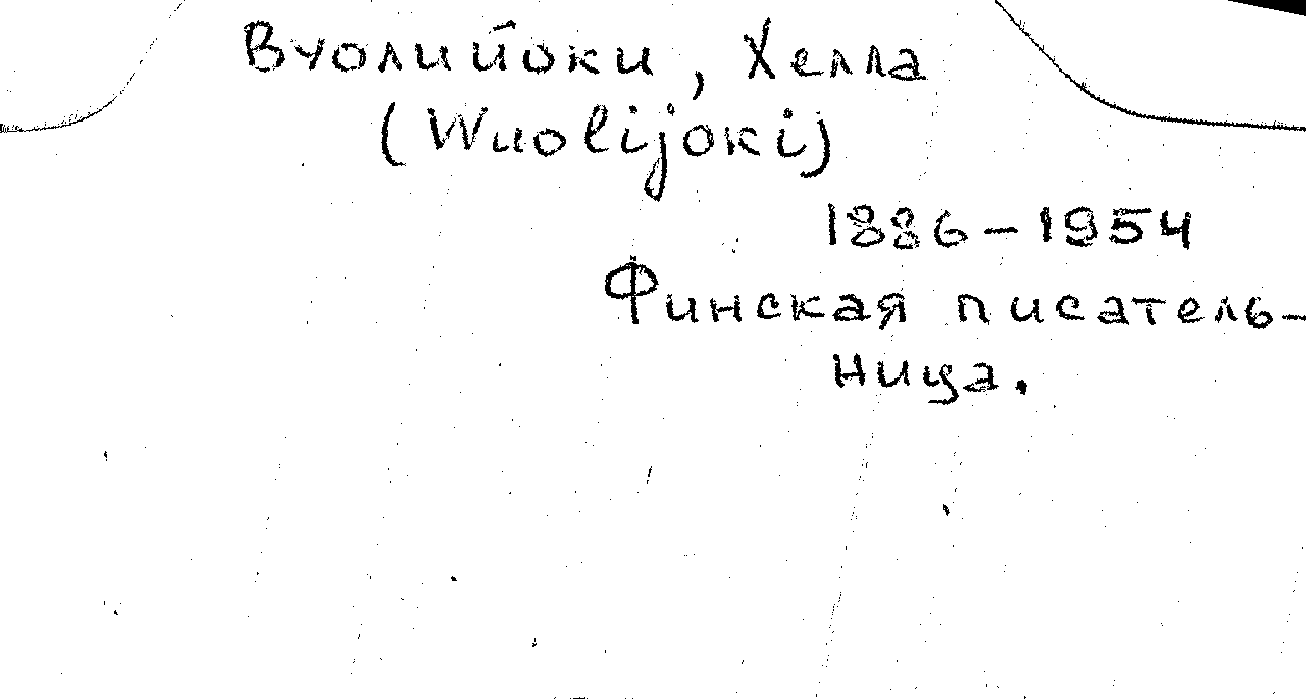 Вуолийоки, Хелла
(Wuolijoki)
1886-1954
Финская писатель-
ница.